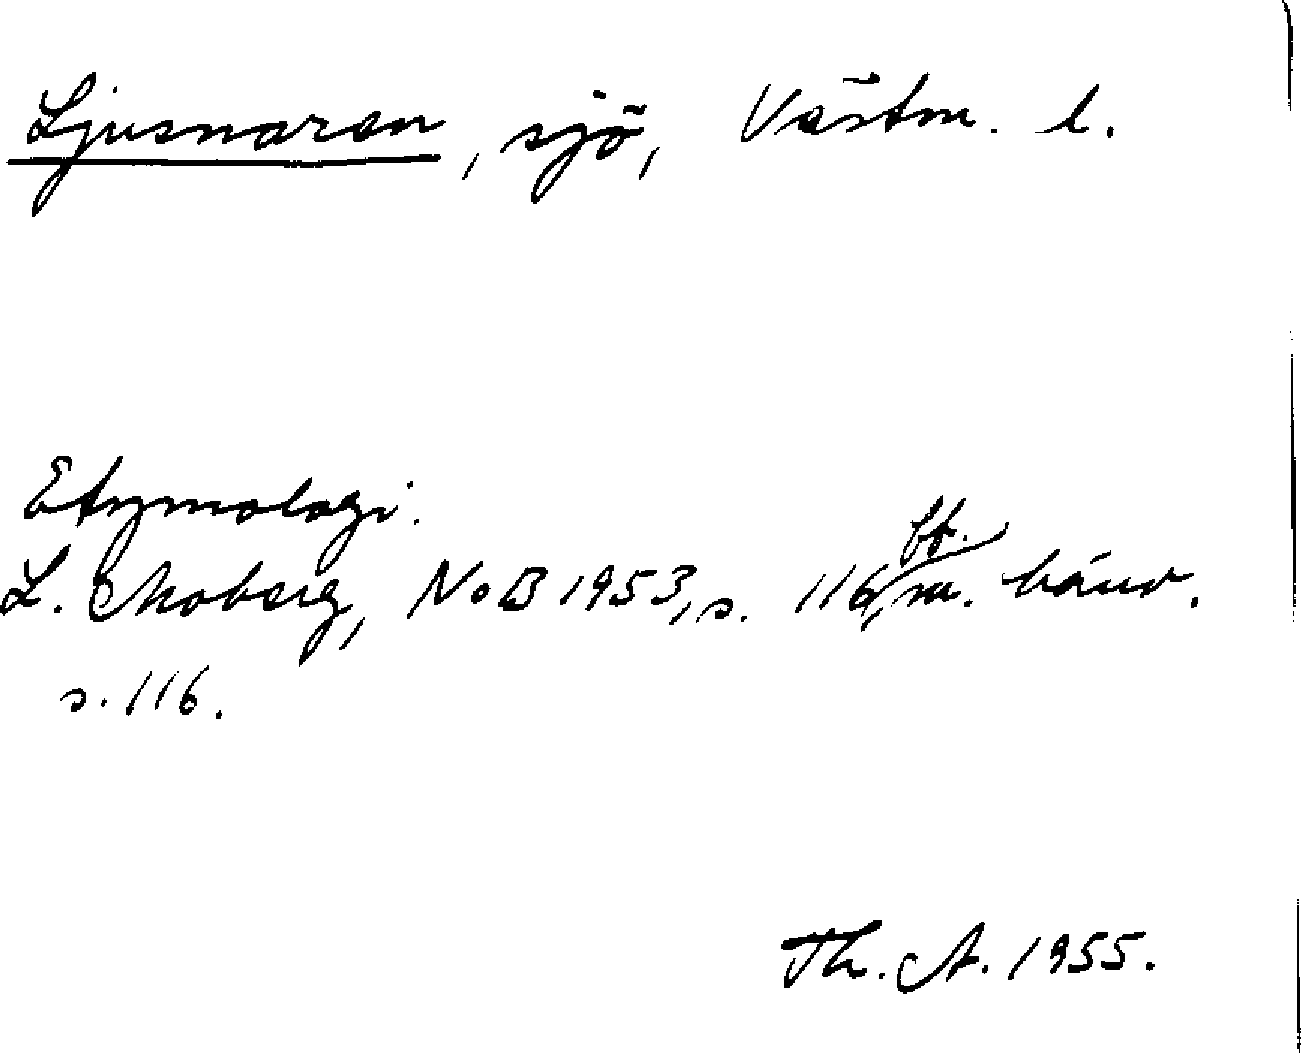 Ljusnaren, sjö, Västm. l.
Etymologi.
L. Moberg, NoB 1953, s. 116, ff. m. hänv.
s. 116.
Th. A. 1955.